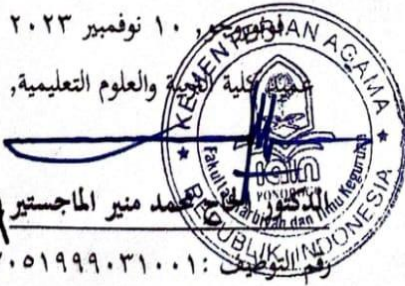 فونوروجو, ١٠ نوفمبير ٢٠٢٣
عميد كلية التربية والعلوم التعليمية,
KEMENTERIAN AGAMA
REPUBLIK INDONESIA
iain
PONOROGO
Fakultas Tarbiyah dan Ilmu Keguruan
الدكتور الحاج محمد منير الماجستير
رقم التوظيف :٠٥١٩٩٩٠٣١٠٠١